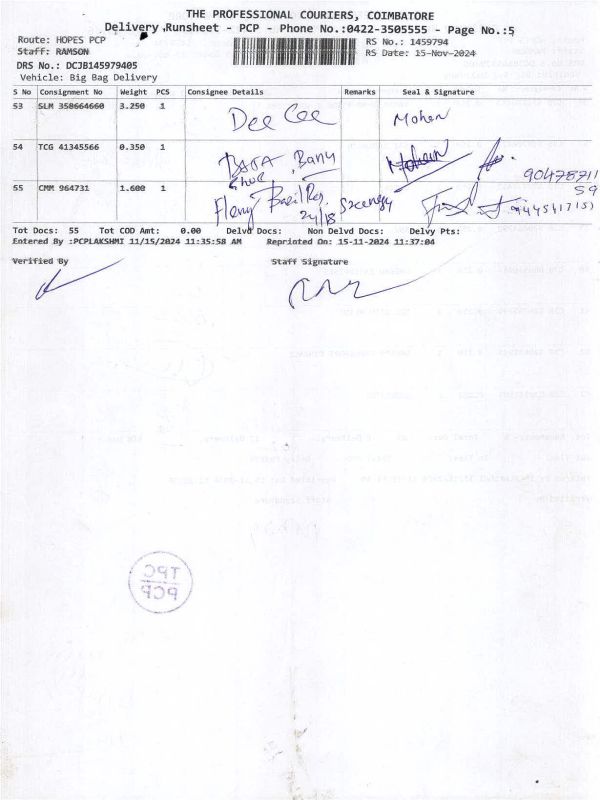 THE PROFESSIONAL COURIERS, COIMBATORE
Delivery Runsheet - PCP - Phone No.:0422-3505555 - Page No.:5
Route: HOPES PCP
RS No.: 1459794
Staff: RAMSON
RS Date: 15-Nov-2024
DRS No.: DCJB145979405
Vehicle: Big Bag Delivery
S No Consignment No Weight PCS Consignee Details Remarks Seal & Signature
53 SLM 358664660 3.250 1 Dee Cee Mohan
54 TCG 41345566 0.350 1 BATA
90478711
59
55 CMM 964731 1.600 1
24/18
Tot Docs: 55 Tot COD Amt: 0.00 Delvd Docs: Non Delvd Docs: Delvy Pts:
Entered By :PCPLAKSHMI 11/15/2024 11:35:58 AM Reprinted On: 15-11-2024 11:37:04
Verified By Staff Signature
TPC
PCP